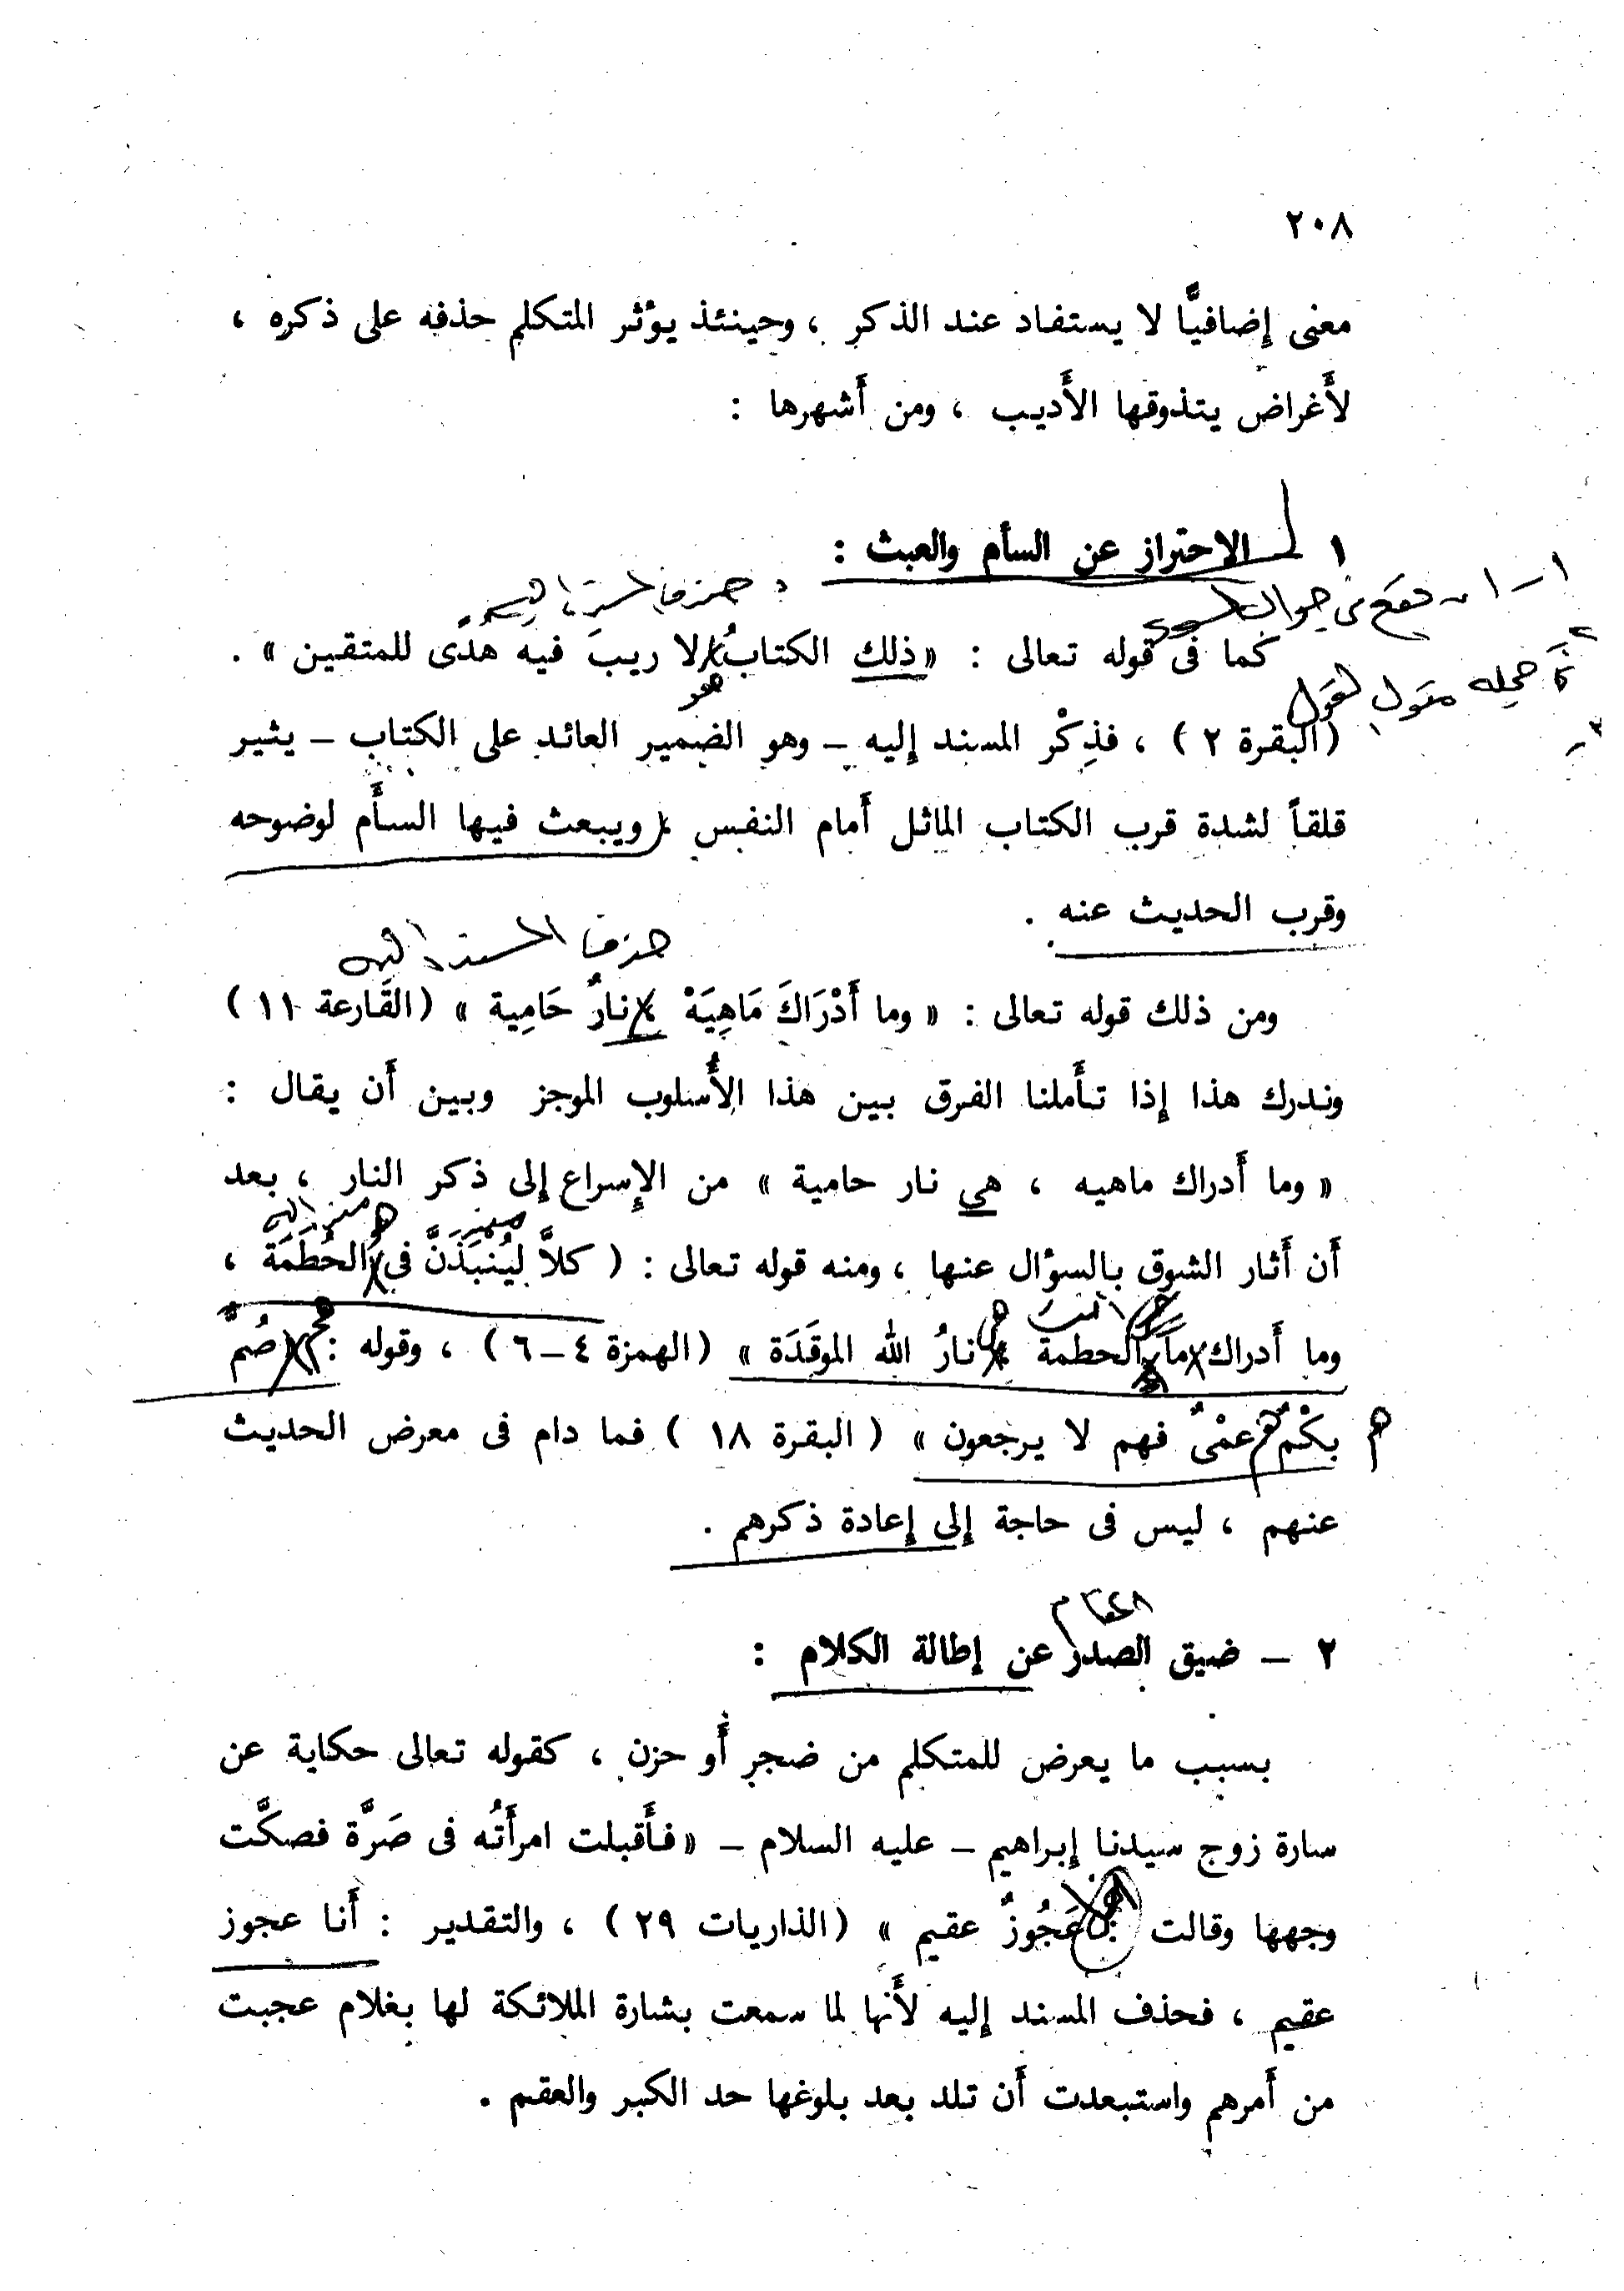 ٢٠٨
معنى إضافيًّا لا يستفاد عند الذكر ، وحينئذ يؤثر المتكلم حذفه على ذكره ،
لأَغراض يتذوقها الأَديب ، ومن أَشهرها :
١ – الاحتراز عن السأم والعبث :
حذف المسند إليه
كما فى قوله تعالى : « ذلك الكتابُ لا ريبَ فيه هدًى للمتقين » .
هو
(البقرة ٢ ) ، فذِكْر المسند إليه – وهو الضمير العائد على الكتاب – يثير
قلقاً لشدة قرب الكتاب الماثل أَمام النفس ، ويبعث فيها السأَم لوضوحه
وقرب الحديث عنه .
حذف المسند إليه
ومن ذلك قوله تعالى : « وما أَدْرَاكَ مَاهِيَهْ نارٌ حَامِية » (القَارعة ١١ )
وندرك هذا إِذا تأَملنا الفرق بين هذا الأُسلوب الموجز وبين أَن يقال :
« وما أَدراك ماهيه ، هي نار حامية » من الإِسراع إِلى ذكر النار ، بعد
أَن أَثار الشوق بالسؤال عنها ، ومنه قوله تعالى : ( كلاَّ ليُنْبَذَنَّ فى الحُطَمَة ،
وما أَدراك ما الحطمة نارُ الله الموقَدَة » (الهمزة ٤ – ٦ ) ، وقوله : صُمٌّ
هم
بكْمٌ عمْىٌ فهم لا يرجعون » ( البقرة ١٨ ) فما دام فى معرض الحديث
عنهم ، ليس فى حاجة إِلى إِعادة ذكرهم .
المقام
٢ – ضيق الصدر عن إطالة الكلام :
بسبب ما يعرض للمتكلم من ضجر أَو حزن ، كقوله تعالى حكاية عن
سارة زوج سيدنا إِبراهيم – عليه السلام – « فأَقبلت امرأَتُه فى صَرَّة فصكَّت
وجهها وقالت : عَجُوزٌ عقيم » (الذاريات ٢٩ ) ، والتقدير : أَنا عجوز
عقيم ، فحذف المسند إِليه لأَنها لما سمعت بشارة الملائكة لها بغلام عجبت
من أَمرهم واستبعدت أَن تلد بعد بلوغها حد الكبر والعقم .